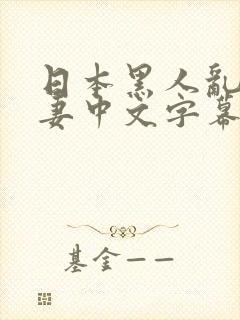 日本黑人亂
妻中文字幕
基金——